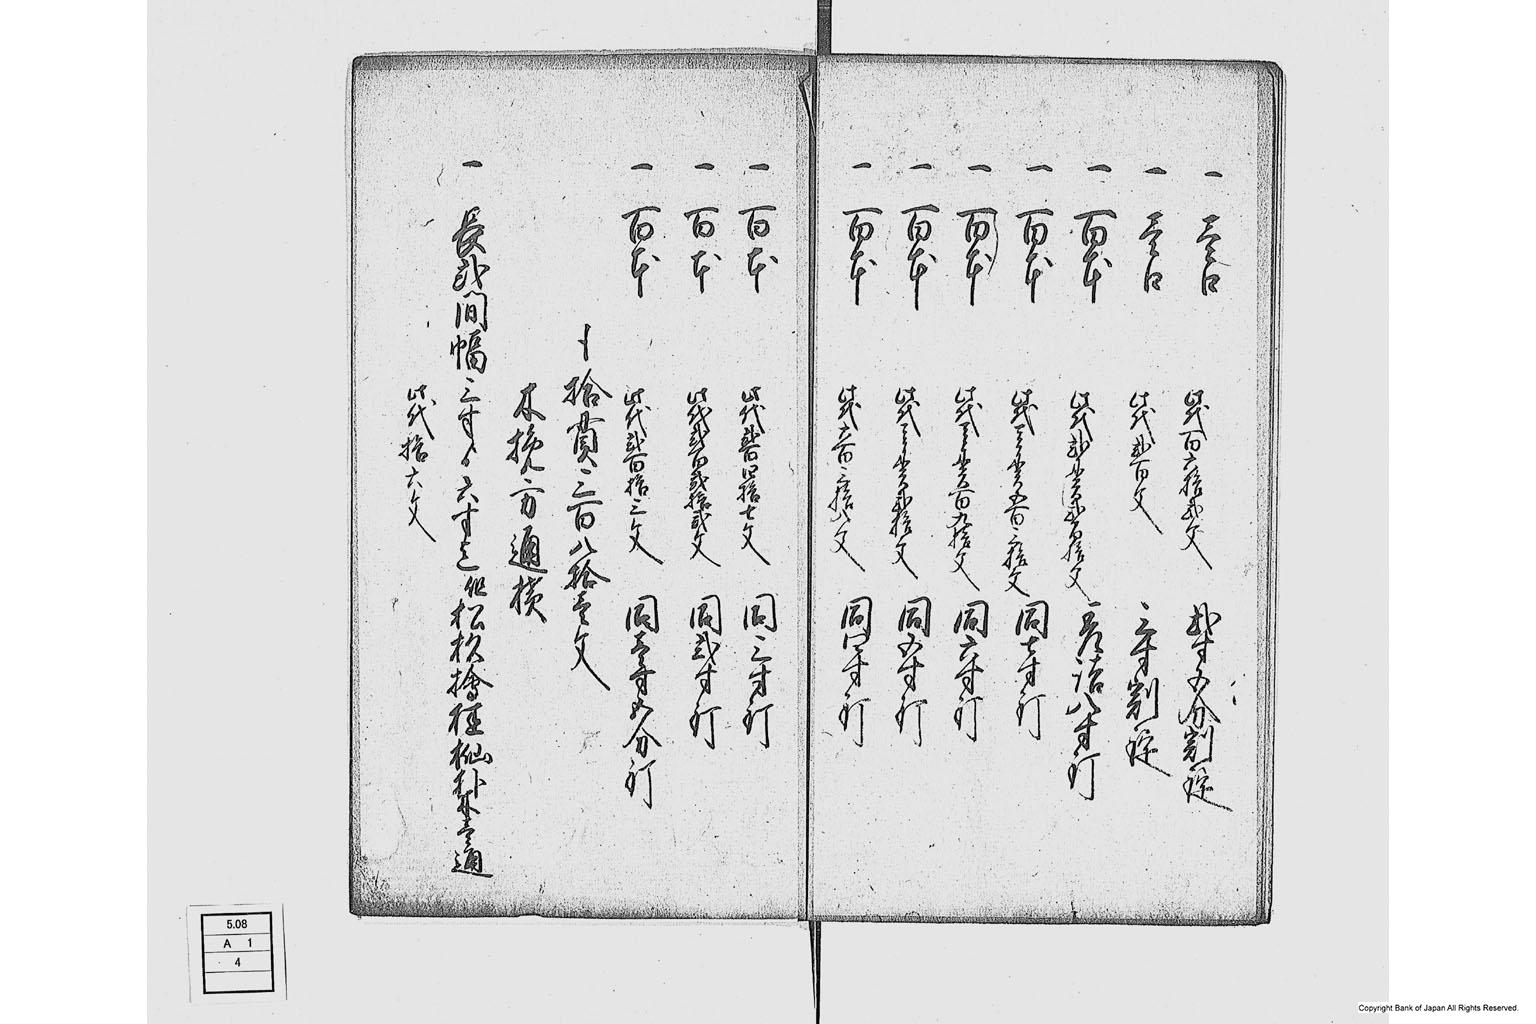 一 壱口 此代百六拾弐文 弐寸五分割鎹
一 壱口 此代弐百文 三寸割鎹
一 百本 此代弐貫弐百拾文 瓦詰八寸釘
一 百本 此代壱貫五百三拾文 同七寸釘
一 百本 此代壱貫百九拾文 同六寸釘
一 百本 此代壱貫弐拾文 同五寸釘
一 百本 此代六百三拾八文 同四寸釘
一 百本 此代弐百四拾七文 同三寸釘
一 百本 此代弐百弐拾弐文 同弐寸釘
一 百本 此代弐百拾三文 同壱寸五分釘
〆拾貫三百八拾壱文
木挽方通横
一 長弐間幅三寸ゟ六寸迄 但松杉檜桂栂朴木壱通
此代拾六文
5.08
A 1
4
Copyright Bank of Japan All Rights Reserved.